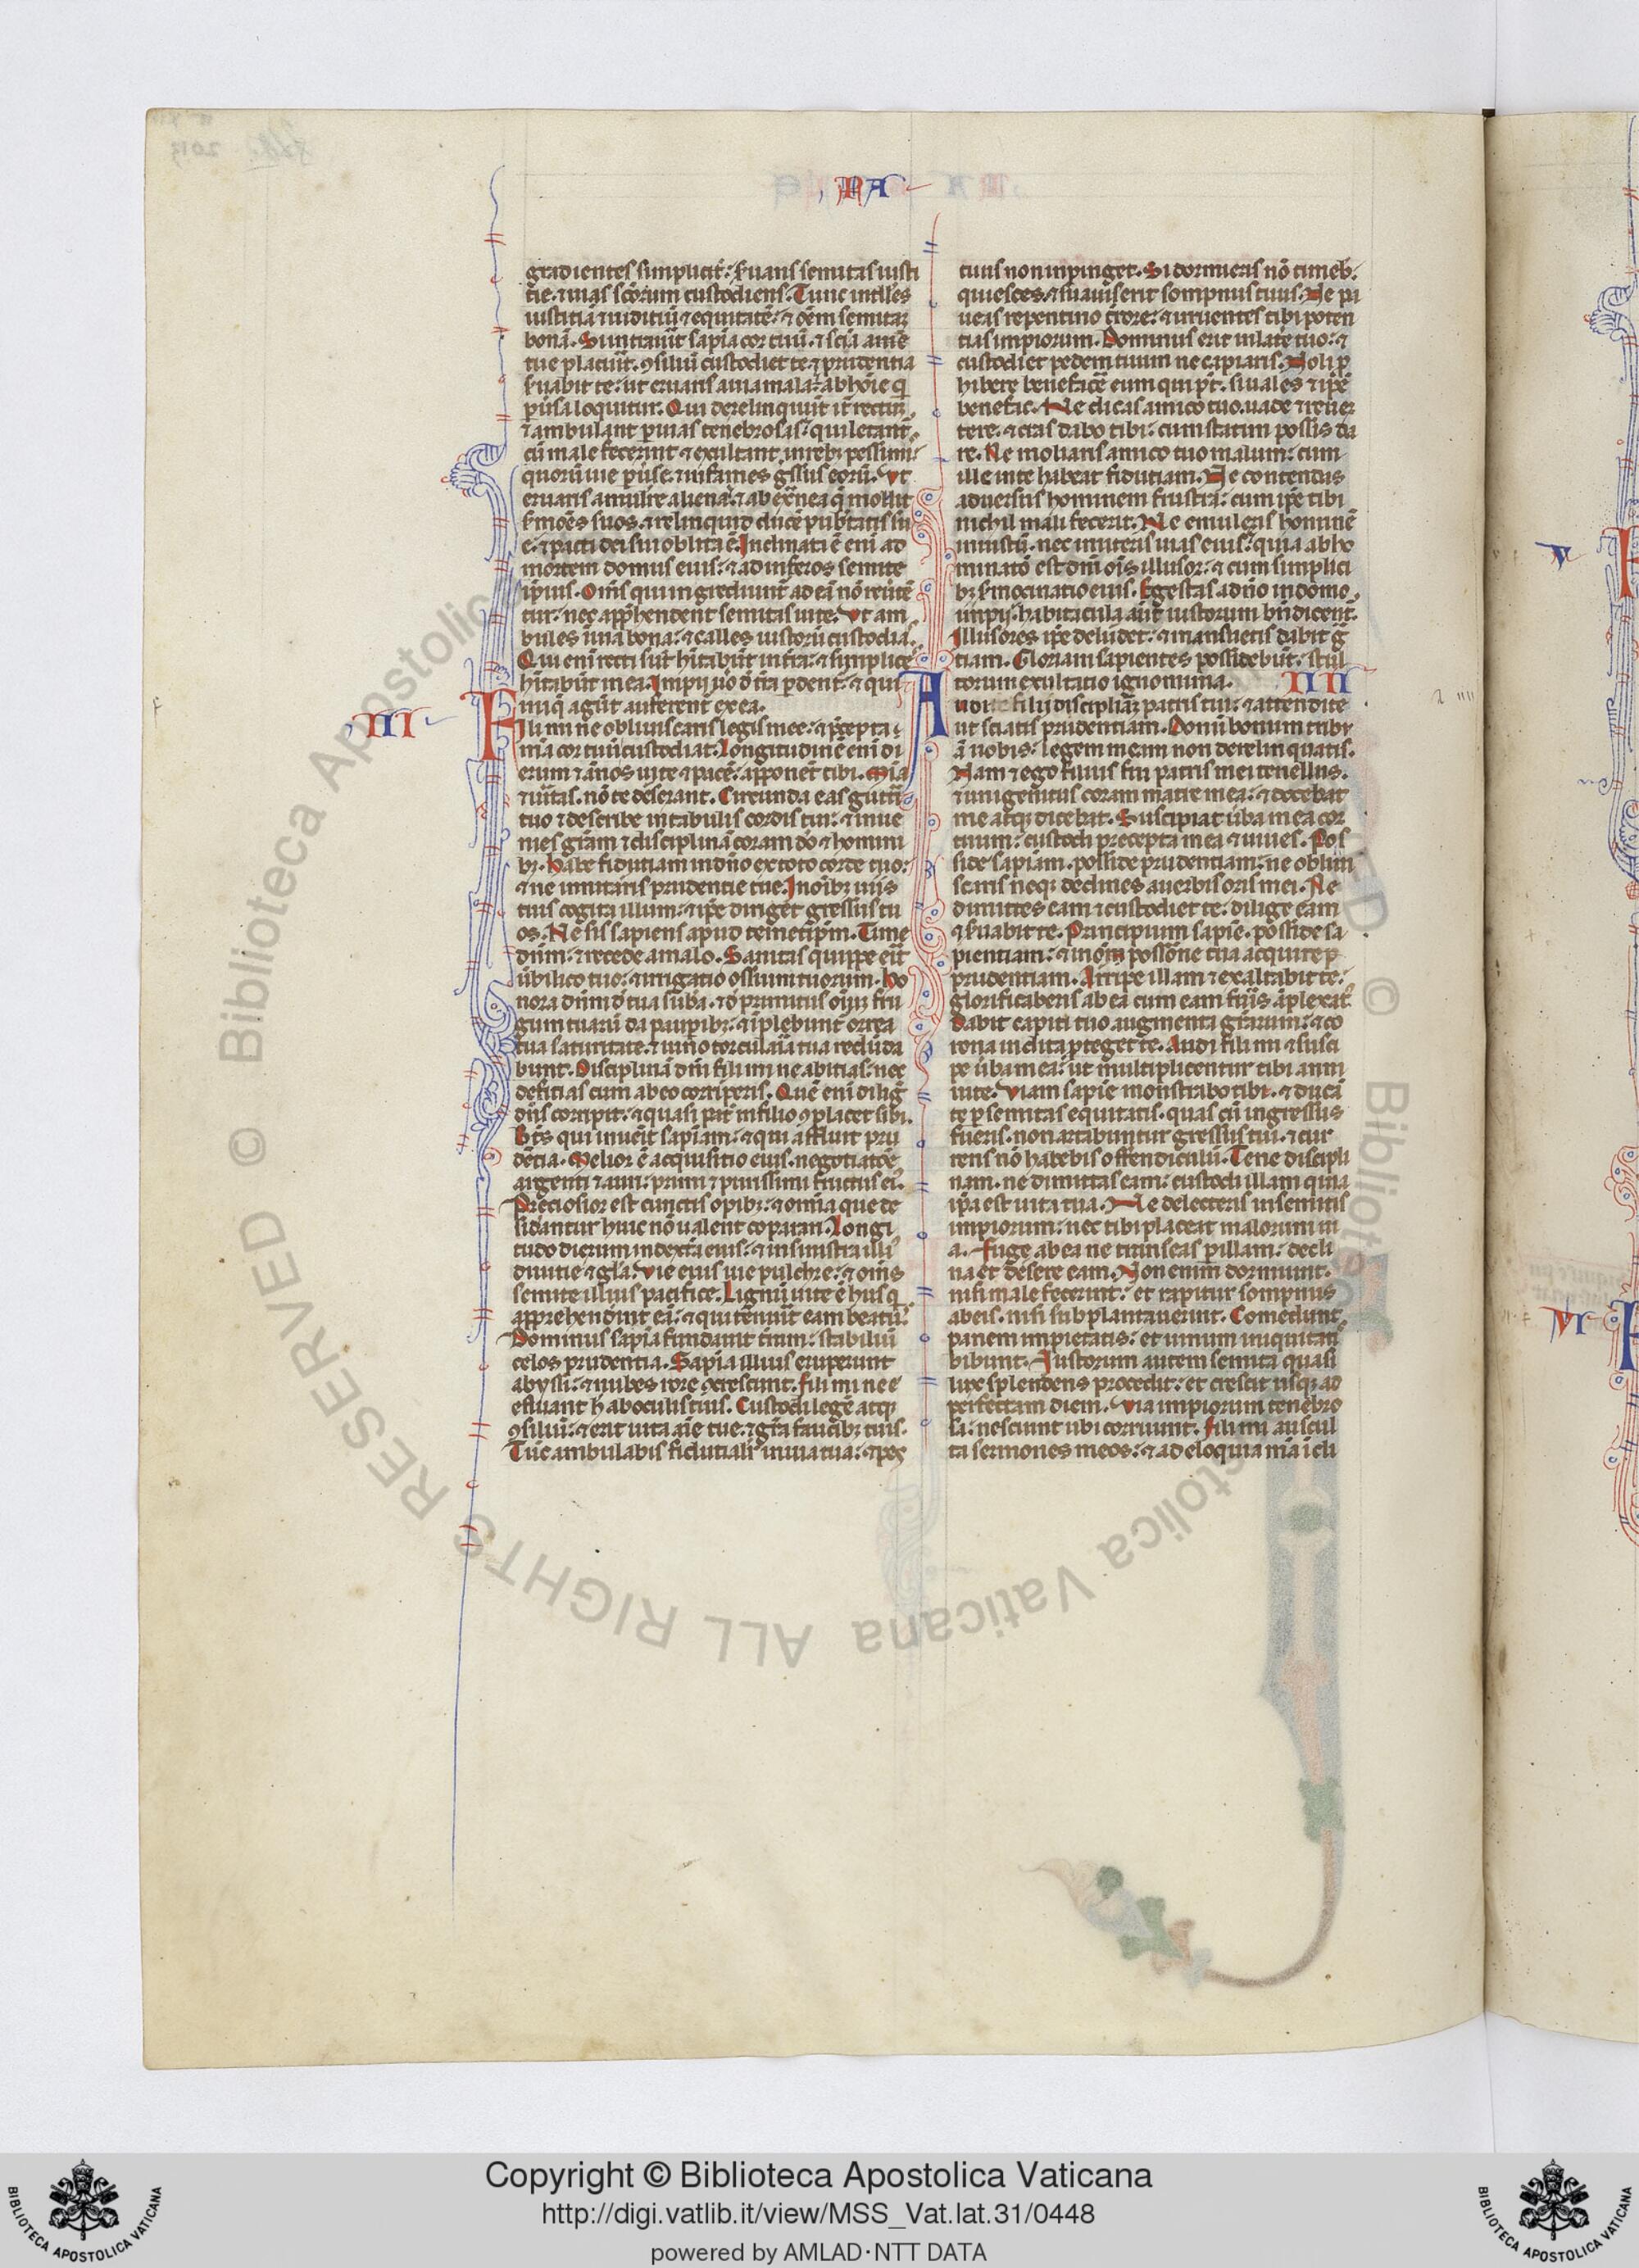 PA
gradientes simplicit̄. s̄uans semitas iusti
cie. ⁊ uias sc̄orum custodiens. Tunc intelles
iusticiā ⁊ iudiciū ⁊ equitatē. ⁊ oēm semitaꝫ
bonā. Si intrau̅it sapīa cor tuū. ⁊ scīa anīe
tue placūit. ꝯsiliū custodiet te ⁊ prudentia
s̄uabit te. ut eruaris a uia mala. ⁊ ab hōīe q̇
puersa loquitur. Qui derelinquūt it̄ rectū
⁊ ambulant ꝑ uias tenebrosas. qui letant̄
cū male fecerint ⁊ exultant in rebꝫ pessimis
quorū uie ꝑuse. ⁊ infames gr̄ssus eorū. Vt
eruaris a muliere aliena. ⁊ ab ext̄nea q̄ mollit
s̄mōes suos. ⁊ relinquid ducē pub̄tatis su
e. ⁊ pacti dei sui oblita ē. Inclinata ē enī ad
mortem domus eius. ⁊ ad inferos semite
ip̄ius. Om̄s qui ingrediunt̄ ad eā nō reu̅tē
tur. nec app̄hendent semitas uite. Vt am
bules in uia bona. ⁊ calles iustorū custodias.
Qui enī recti sūt hītabūt in tr̄a. ⁊ simplices
hītabūt in ea. Impij uō d̄ tr̄a ꝑdent̄. ⁊ qui
iniq̄ agūt auferent̄ ex ea.
III
Fili mi ne obliuiscaris legis mee. ⁊ p̄cepta
mīa cor tuū custodiat. Longitudinē enī di
erum ⁊ annos uite ⁊ pacē. apponēt tibi. Mīa
⁊ uītas. nō te deserant. Circunda eas gutt̄i
tuo ⁊ describe in tabulis cordis tui. ⁊ inue
nies grām ⁊ disciplinā coram dō ⁊ homini
bꝫ. Habe fiduciam in dn̄o ex toto corde tuo.
⁊ ne innitaris prudentie tue. In oībꝫ uiis
tuis cogita illum. ⁊ ip̄e diriget gressus tu
os. Ne sis sapiens apud temetip̄m. Time
dn̄m. ⁊ recede a malo. Sanitas quippe erit
ūbilico tuo. ⁊ irrigatio ossium tuorum. Ho
nora dn̄m d̄ tua sūba. ⁊ d̄ primitiis oīuꝫ fru
gum tuarū da paupibꝫ. ⁊ īplebunt̄ orrea
tua saturitate. ⁊ uino torcularia tua redūda
bunt. Disciplinā dn̄i fili mi ne abicias. nec
deficias cum ab eo corriperis. Quē enī dilig̅
dn̄s corripit. ⁊ quasi pat̄ in filio ꝯplacet sibi.
Bt̄s qui inuen̅it sapīam. ⁊ qui affluit pru
dētia. Melior ē acquisitio eius. negotiatōe
argenti ⁊ auri. primi ⁊ purissimi fructus ei⁹.
Preciosior est cunctis opibꝫ. ⁊ omīa que de
siderantur huic nō ualent cōparari. Longi
tudo dierum in dext̄a eius. ⁊ in sinistra illi⁹
diuitie ⁊ gl̄a. Vie eius uie pulchre. ⁊ om̄s
semite illius pacifice. Lignū uite ē hiis q̇
apprehendūt eā. ⁊ qui tenūit eam beatus.
Dominus sapīa fundauit t̄ram. stabiliuit
celos prudentia. Sapīa illius eruperunt
abyssi. ⁊ nubes rore ꝯcrescunt. Fili mi ne e
ffluant h̄ ab oculis tuis. Custodi legē atqꝫ
ꝯsiliū. ⁊ erit uita aīe tue. ⁊ gr̄a faucibꝫ tuis.
Tūc ambulabis fiducialit̄ in uia tua. ⁊ pes
tuus non inpinget. Si dormieris nō timeb̄.
quiesces. ⁊ suauis erit sompnus tuus. Ne pa
ueas repentino t̄rore. ⁊ irruentes tibi poten
tias impiorum. Dominus erit in lat̄e tuo. ⁊
custodiet pedem tuum ne capiaris. Noli ꝓ
hibere benefac̄e eum qui pt̄. si uales ⁊ ip̄e
benefac. Ne dicas amico tuo. uade ⁊ reuer
tere. ⁊ cras dabo tibi. cum statim possis da
re. Ne moliaris amico tuo malum. cum
ille in te habeat fiduciam. Ne contendas
aduersus hominem frustra. cum ip̄e tibi
nichil mali fecerit. Ne emuleris hominē
iniustū. nec imiteris uias eius. quia abho
minatō est dn̄i om̄s illusor. ⁊ cum simplici
bꝫ s̄mocinatio eius. Egestas a dn̄o in domo
impij. habitacula aūt iustorum bn̄dicent̄.
Illusores ip̄e deludet. ⁊ mansuetis dabit gr̄
tiam. Gloriam sapientes possidebūt. stul
torum exultatio ignominia.
IIII
Audite filij disciplinā patris tui. ⁊ attendite
ut sciatis prudentiam. Donū bonum tribu
ā uobis. legem meam non derelinquatis.
Nam ⁊ ego filius fui patris mei tenellus.
⁊ unigenitus coram matre mea. ⁊ docebat
me atqꝫ dicebat. Suscipiat ūba mea cor
tuum. custodi precepta mea ⁊ uiues. Pos
side sapīam. posside prudentiam. ne obliui
scaris neqꝫ declines a uerbis oris mei. Ne
dimittes eam ⁊ custodiet te. dilige eam
⁊ s̄uabit te. Principium sapīe. posside sa
pientiam. ⁊ in om̄i possōne tua acquire p
prudentiam. Arripe illam ⁊ exaltabit te.
glorificaberis ab ea cum eam fūis āplexat⁹.
Dabit capiti tuo augmenta gr̄arum. ⁊ co
rona inclita ꝓteget te. Audi fili mi ⁊ susci
pe ūba mea. ut multiplicentur tibi anni
uite. Viam sapīe monstrabo tibi. ⁊ ducā
te ꝑ semitas equitatis. quas cū ingressus
fueris. non artabuntur gressus tui. ⁊ cur
rens nō habebis offendiculū. Tene discipli
nam. ne dimittas eam. custodi illam quia
ip̄a est uita tua. Ne delecteris in semitis
impiorum. nec tibi placeat malorum ui
a. Fuge ab ea ne transeas ꝑ illam. decli
na et desere eam. Non enim dormiunt.
nisi male fecerint. et rapitur sompnus
ab eis. nisi subplantauerint. Comedunt
panem impietatis. et uinum iniquitatis
bibunt. Iustorum autem semita quasi
lux splendens procedit. et crescit usqꝫ ad
perfectam diem. Via impiorum tenebro
sa. nesciunt ubi corruunt. Fili mi auscul
ta sermones meos. ⁊ ad eloquia mīa īcli
V
VI
Copyright © Biblioteca Apostolica Vaticana
http://digi.vatlib.it/view/MSS_Vat.lat.31/0448
powered by AMLAD·NTT DATA
BIBLIOTECA APOSTOLICA VATICANA
BIBLIOTECA APOSTOLICA VATICANA
© Biblioteca Apostolica Vaticana ALL RIGHTS RESERVED © Biblioteca Apostolica